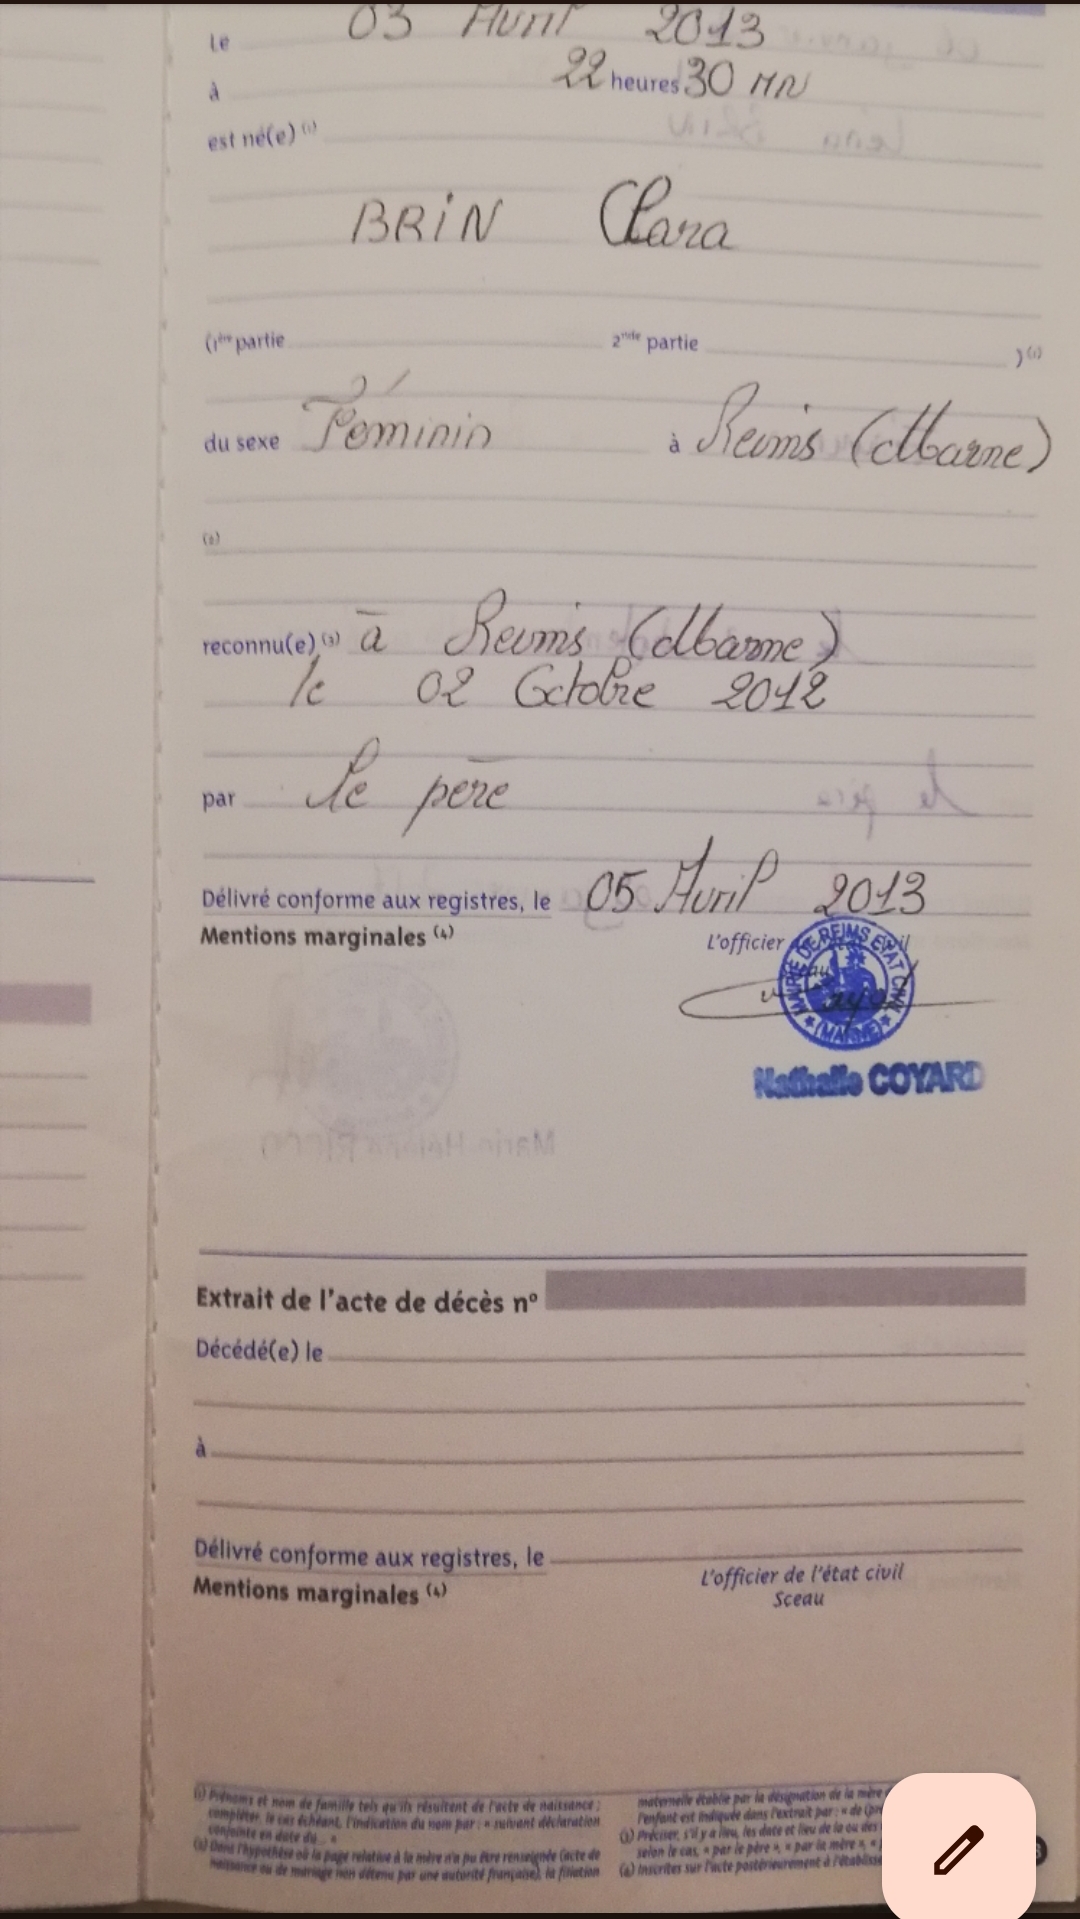 Le 03 Avril 2013
à 22 heures 30 MN
est né(e) (1)
BRIN Clara
(1ère partie 2nde partie )(1)
du sexe Féminin à Reims (Marne)
(2)
reconnu(e) (3) à Reims (Marne)
le 02 Octobre 2012
par le père
Délivré conforme aux registres, le 05 Avril 2013
Mentions marginales (4)
L'officier de l'état civil
Sceau
MAIRIE DE REIMS ETAT CIVIL
(MARNE)
Nathalie COYARD
Extrait de l'acte de décès nº
Décédé(e) le
à
Délivré conforme aux registres, le
Mentions marginales (4)
L'officier de l'état civil
Sceau
(1) Prénoms et nom de famille tels qu'ils résultent de l'acte de naissance ;
compléter, le cas échéant, l'indication du nom par : « suivant déclaration
conjointe en date du... »
(2) Dans l'hypothèse où la page relative à la mère n'a pu être renseignée (acte de
naissance ou de mariage non détenu par une autorité française), la filiation
maternelle établie par la désignation de la mère
l'enfant est indiquée dans l'extrait par : « de
(3) Préciser, s'il y a lieu, les date et lieu de la ou des
selon le cas, « par le père », « par la mère », «
(4) Inscrites sur l'acte postérieurement à